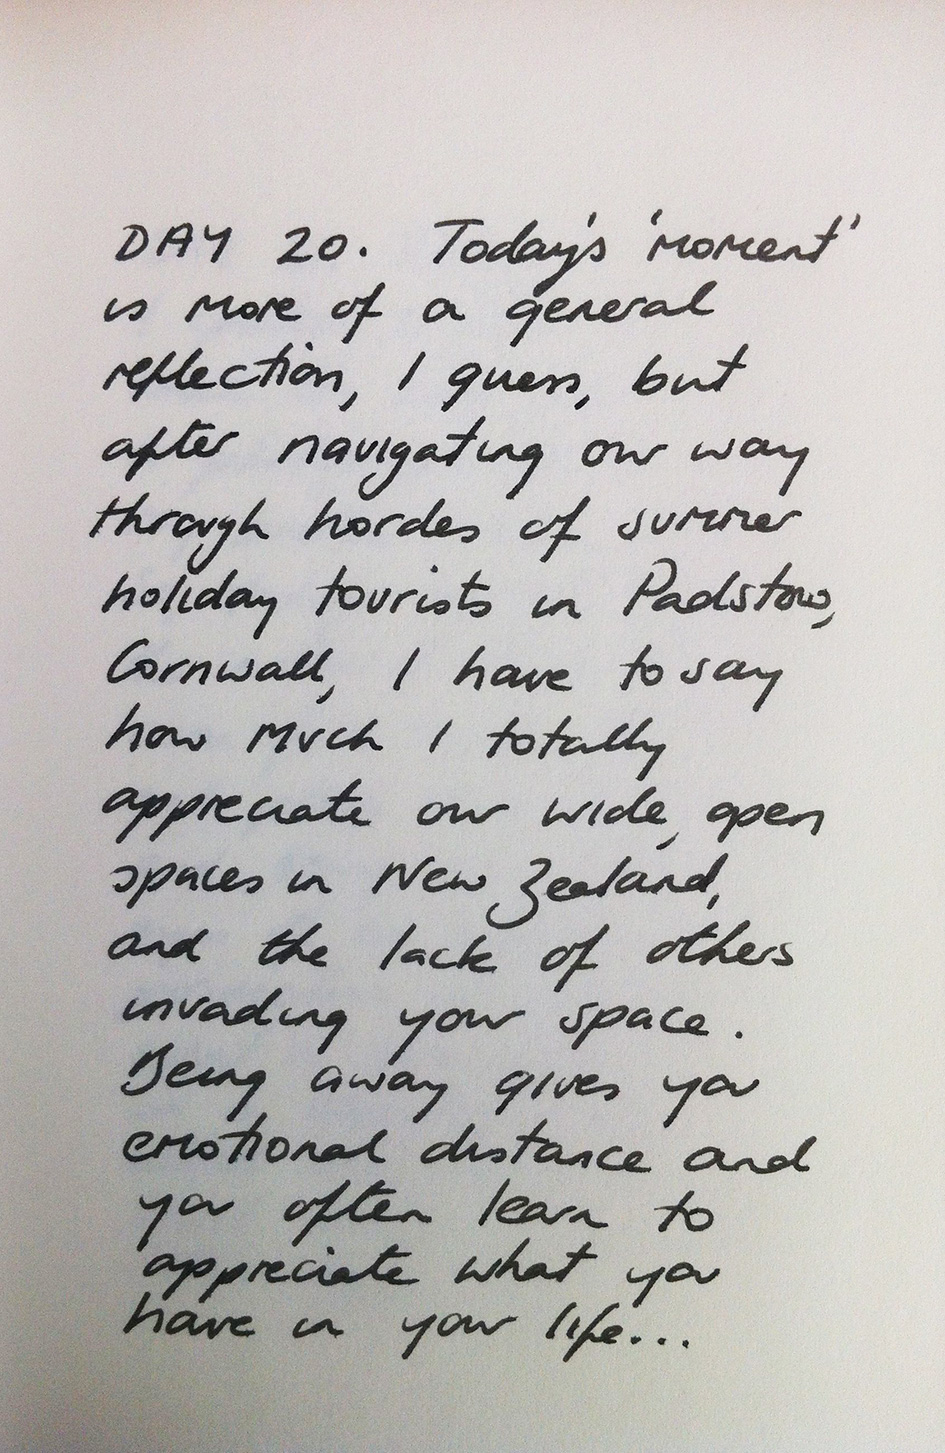 DAY 20. Today's 'moment'
is more of a general
reflection, I guess, but
after navigating our way
through hordes of summer
holiday tourists in Padstow,
Cornwall, I have to say
how much I totally
appreciate our wide, open
spaces in New Zealand,
and the lack of others
invading your space.
Being away gives you
emotional distance and
you often learn to
appreciate what you
have in your life...